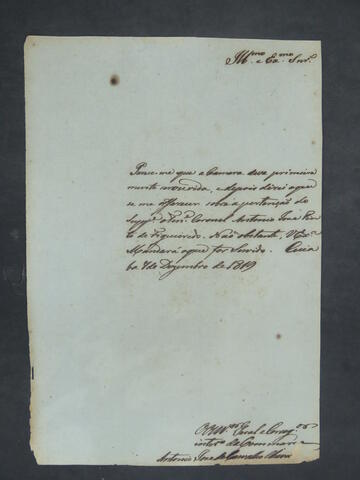 Illmo. e Exmo. Snr.
Parece-me que a Camara deve primeira
mente ser ouvida, e depois direi o que
se me offerecer sobre a pertenção do
Suppe. o Tene. Coronel Antonio José Pin
to de Figueiredo. Não obstante, V. Exa.
Mandará o que for Servido. Cuia
bá 7 de Dezembro de 1819
Geral e
intero. da Commarca
Antonio José de Carvalho